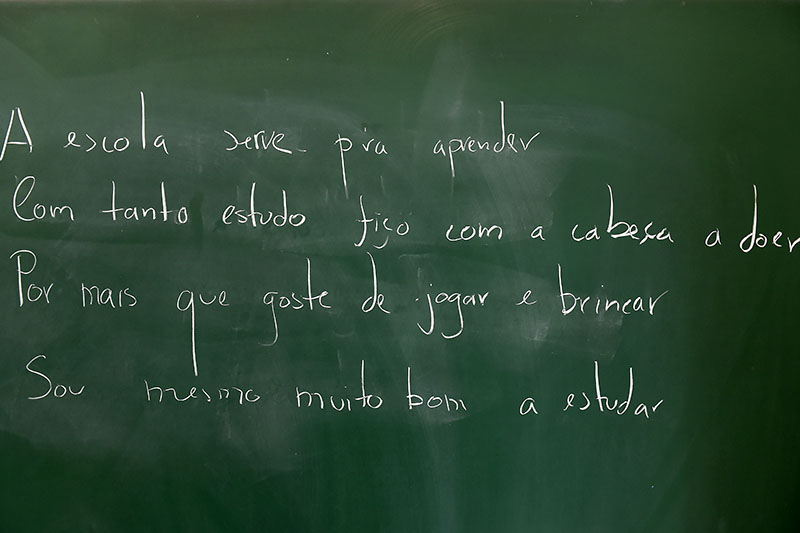 A escola serve p'ra aprender
Com tanto estudo fiço com a cabeça a doer
Por mais que goste de jogar e brincar
Sou mesmo muito bom a estudar